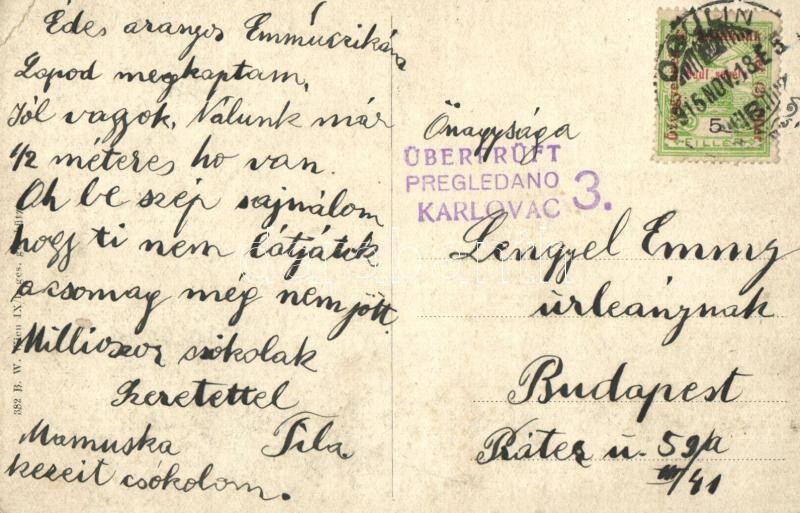 Édes aranyos Emmuczikám
Lapod megkaptam,
Jól vagyok. Nálunk már
1/2 méteres ho van.
Oh be szép sajnálom
hogy ti nem látjátok
a csomag még nem jött.
Milliószor csókolak
Szeretettel
Mamuska
kezeit csókolom.
Önagysága
ÜBERPRÜFT
PREGLEDANO
KARLOVAC 3.
Lengyel Emmy
urleánynak
Budapest
Ráter u. 59/a
III/41
OGULIN
915 NOV. 18
5
382 B. W.